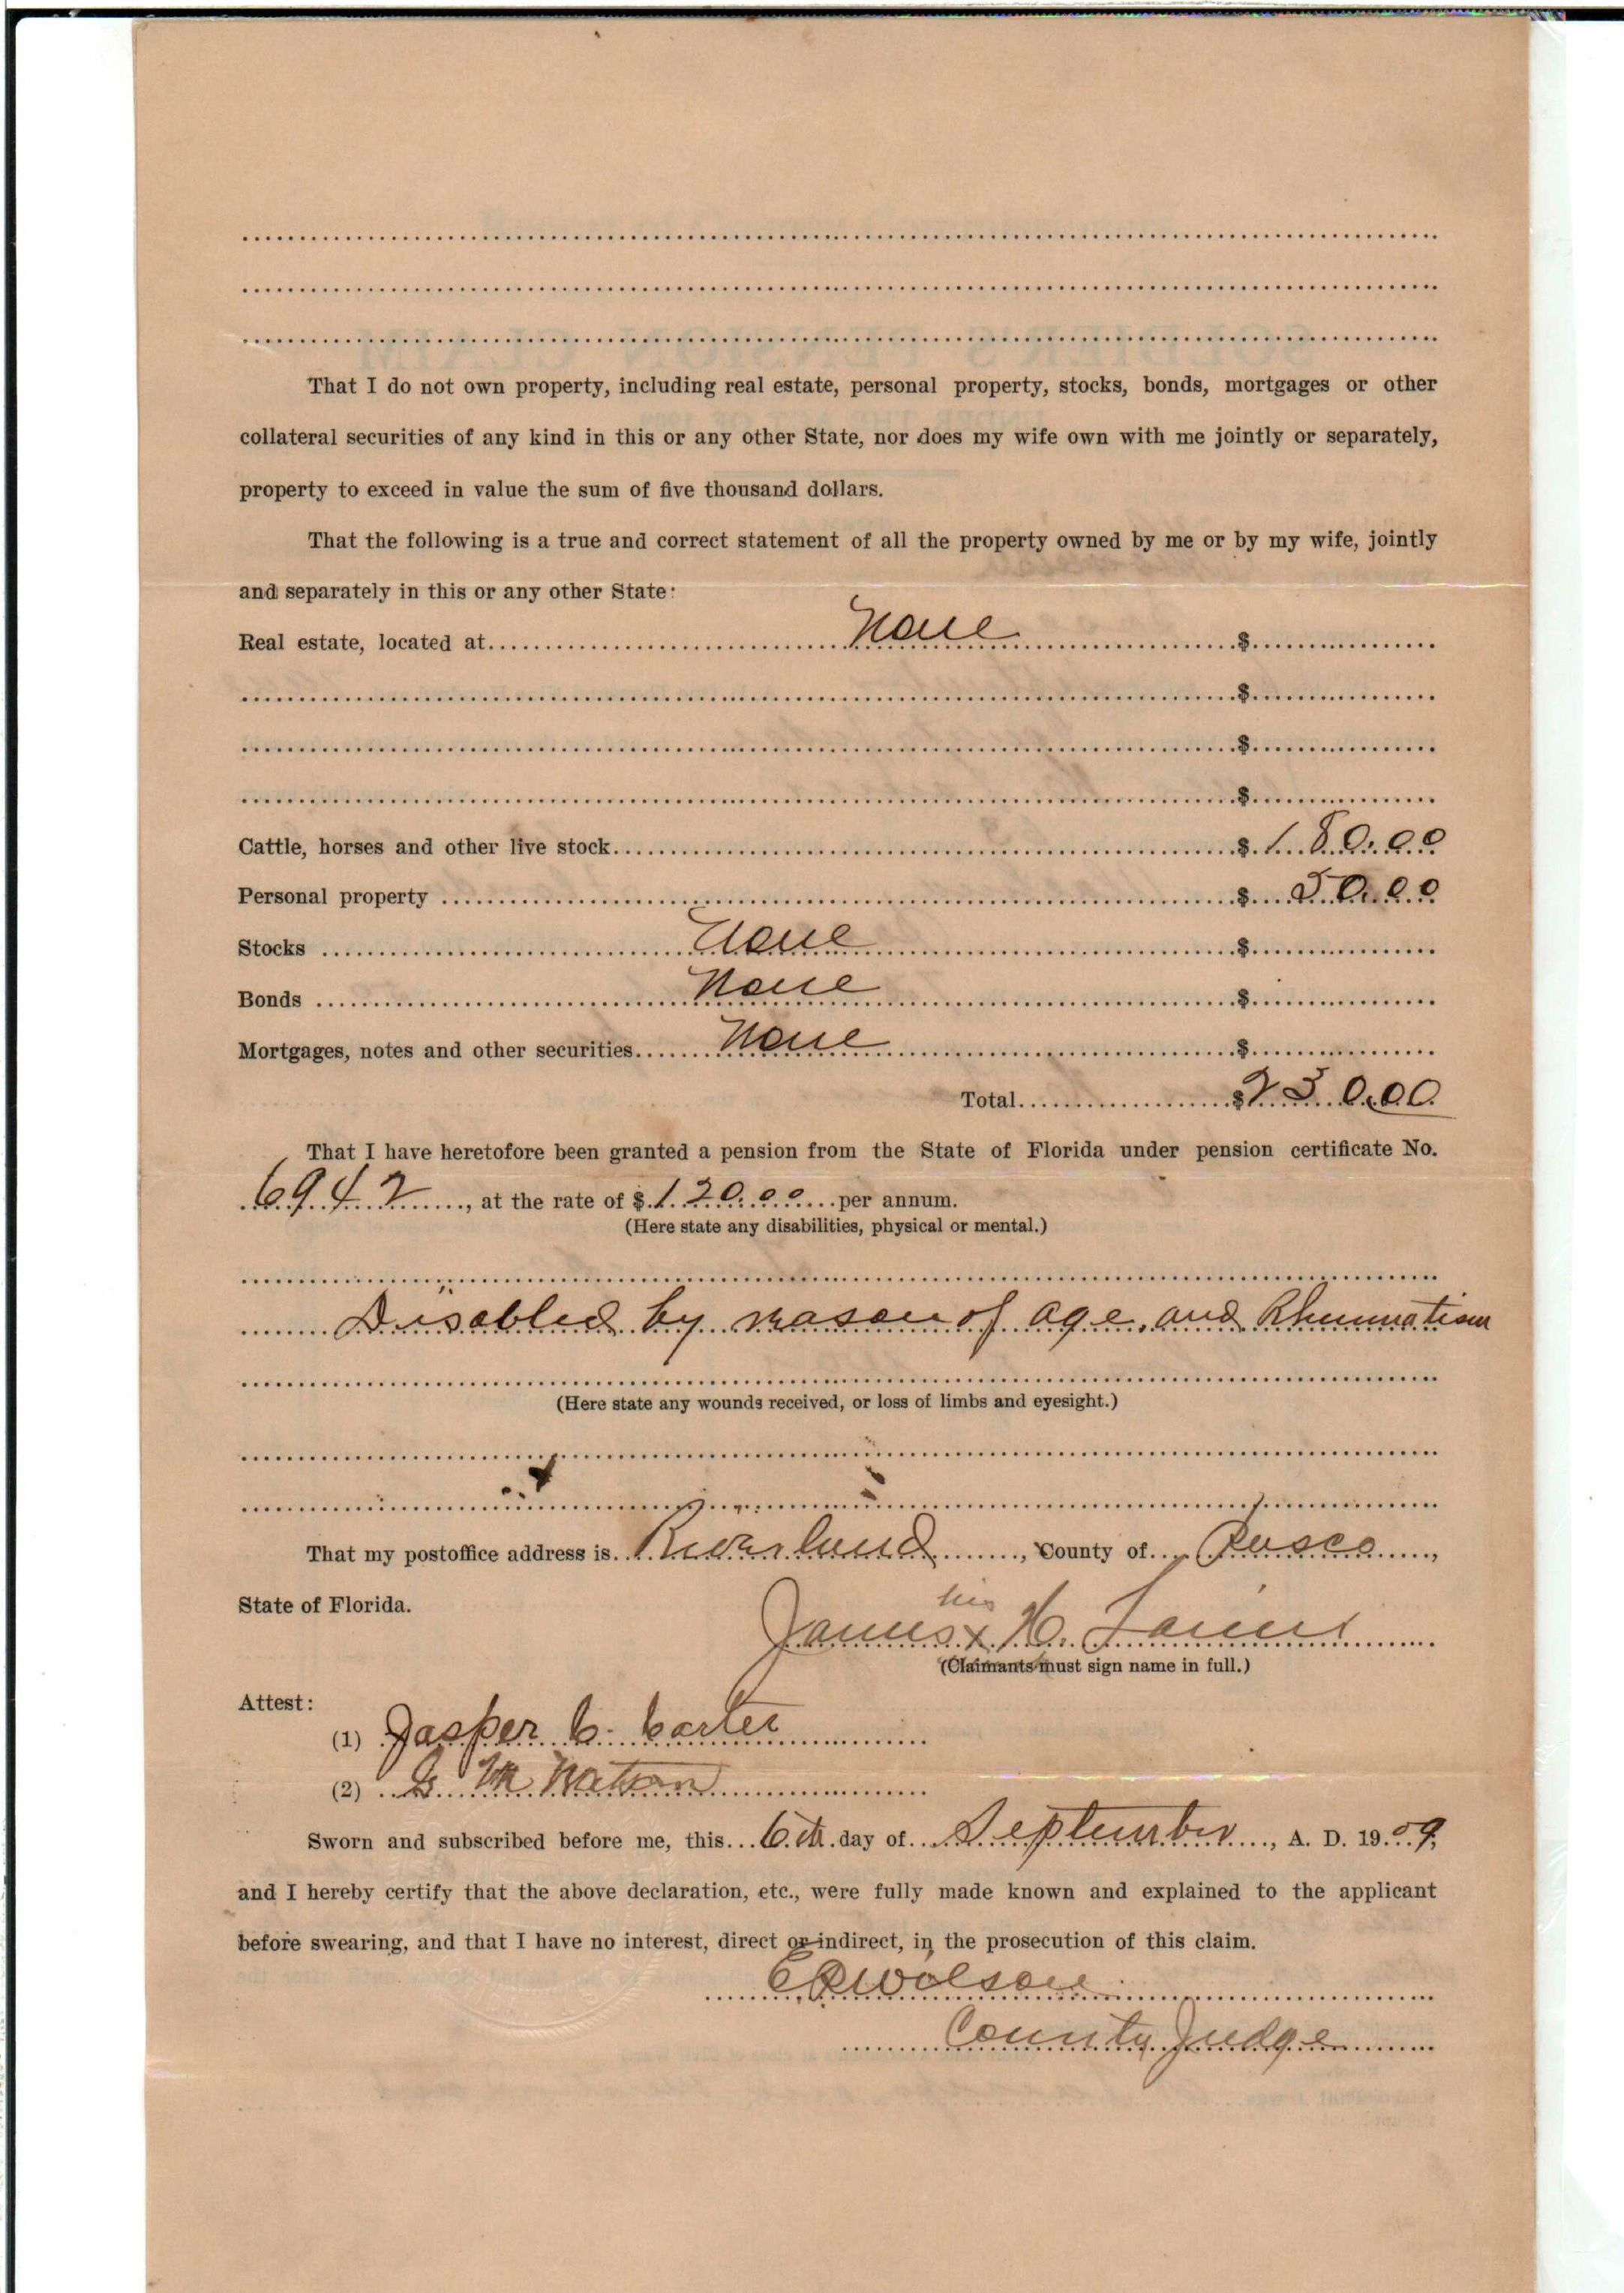 That I do not own property, including real estate, personal property, stocks, bonds, mortgages or other
collateral securities of any kind in this or any other State, nor does my wife own with me jointly or separately,
property to exceed in value the sum of five thousand dollars.
That the following is a true and correct statement of all the property owned by me or by my wife, jointly
and separately in this or any other State:
Real estate, located at None $
$
$
$
Cattle, horses and other live stock $ 180.00
Personal property $ 50.00
Stocks None $
Bonds None $
Mortgages, notes and other securities None $
Total $ 230.00
That I have heretofore been granted a pension from the State of Florida under pension certificate No.
6942, at the rate of $ 120.00 per annum.
(Here state any disabilities, physical or mental.)
Disabled by reason of age, and Rheumatism
(Here state any wounds received, or loss of limbs and eyesight.)
That my postoffice address is Riverland, County of Pasco,
State of Florida.
his
James x H.
(Claimants must sign name in full.)
Attest:
(1) Jasper C. Carter
(2) G. M Watson
Sworn and subscribed before me, this 6th day of September, A. D. 1909,
and I hereby certify that the above declaration, etc., were fully made known and explained to the applicant
before swearing, and that I have no interest, direct or indirect, in the prosecution of this claim.
County Judge